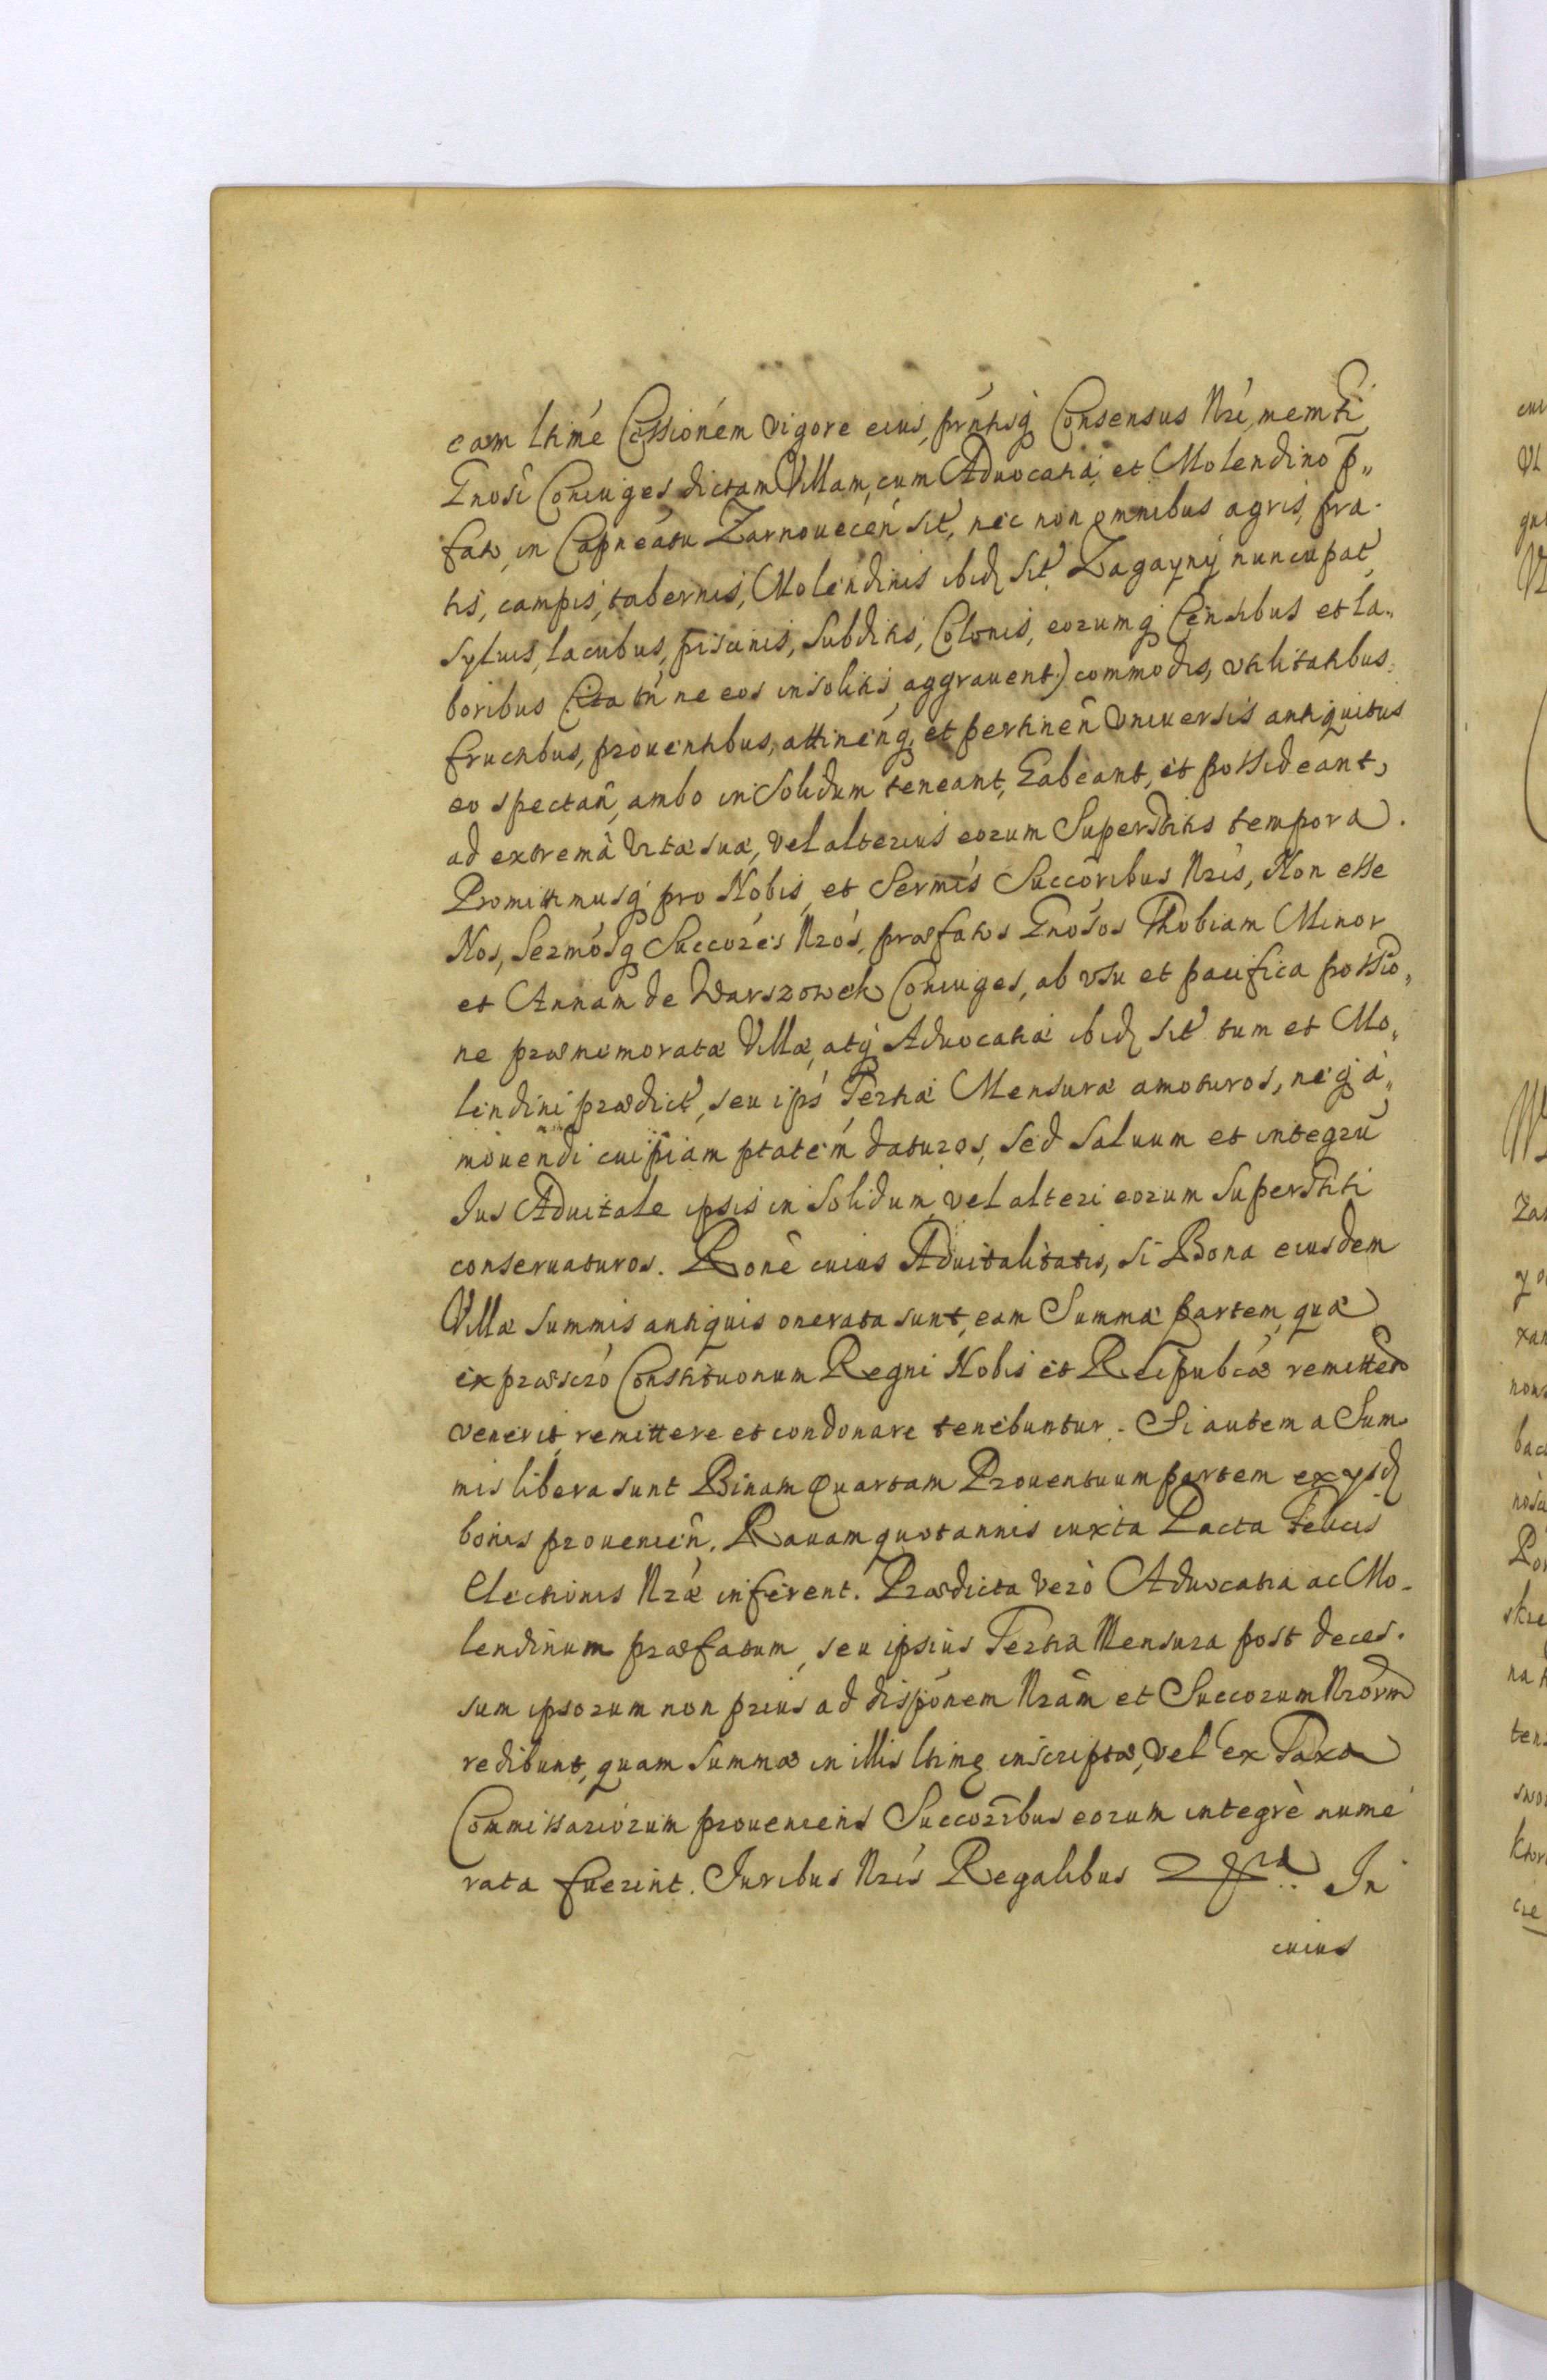 eam ltimé Cessioném vigore eius, prńtisq Consensus Nrí, memti
Gnosi Coniuges dictam Villam, cum Aduocatiá, et Molendino p„
fato, in Capneátu Zarnoueceń sit, néc non omnibus agris, pra-
tis, campis, tabernis, Moléndinis ibid sit Zagayny nuncupat,
syluis, lacubus, piscinis, subditis, Colonis, eorumq Censibus et la„
boribus (ita tń ne eos insolitis aggrauent) commodis, vtilitatibus,
fructibus, prouéntibus, attinéńq, et pertineñ vniuersis antiquitus
eo spectañ, ambo in solidum teneant, habeant, ét possideant,
ad extremà vitæ suæ, vel alterius eorum Superstitis tempora.
Promittimusq pro Nobis, et Sermis Succõribus Nrís, Non esse
Nos, Sermósq Succorés Nrós, præfatos Gnósos Thobiam Minor
et Annam de Warszowek Coniuges, ab vsu et pacifica possio„
ne præmemoratæ Villæ, atq Aduocatiæ ibid sit tum et Mo„
lendini prædict, seu ips Tertiæ Mensuræ amoturos, neq a„
mouendi cuipiam ptatém daturos, sed saluum et integrũ
Ius Aduitale ipsis in solidum vel alteri eorum superstiti
conseruaturos. Ronê cuius Aduitalitatis, si Bona eiusdem
Villæ summis antiquis onerata sunt, eam Summæ partem, quæ
ex præscró Constituonum Regni Nobis et Reipublcæ remitted
venerit, remittere et condonare tenebuntur. Si autem a Sum
mis libera sunt Binam Quartam Prouentuum partem ex ysd
bonis proueniéñ. Rauam quotannis iuxta Pacta felicis
Electionis Nræ inferent. Prædicta verò Aduocatia ac Mo-
lendinum præfatum, seu ipsius Tertia Mensura post deces-
sum ipsorum non prius ad dispónem Nrâm et Succorum Nrórum
redibunt, quam summæ in illis ltime inscriptæ, vel ex Taxa
Commissariórum proueniens Succorîbus eorum integrè nume
rata fuerint. Iuribus Nrís Regalibus In
cuius